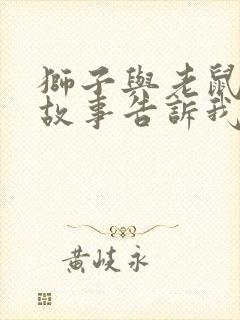 獅子與老鼠
故事告訴我
黃岐永